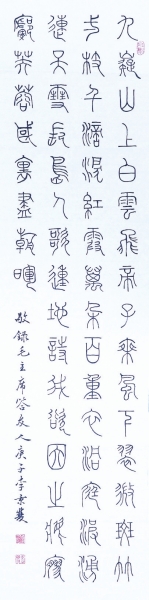 九嶷山上白雲飛帝子乘風下翠微斑竹
一枝千滴淚紅霞萬朵百重衣洞庭波涌
連天雪長島人歌動地詩我欲因之夢寥
廓芙蓉國裏盡朝暉
敬錄毛主席答友人庚子李景